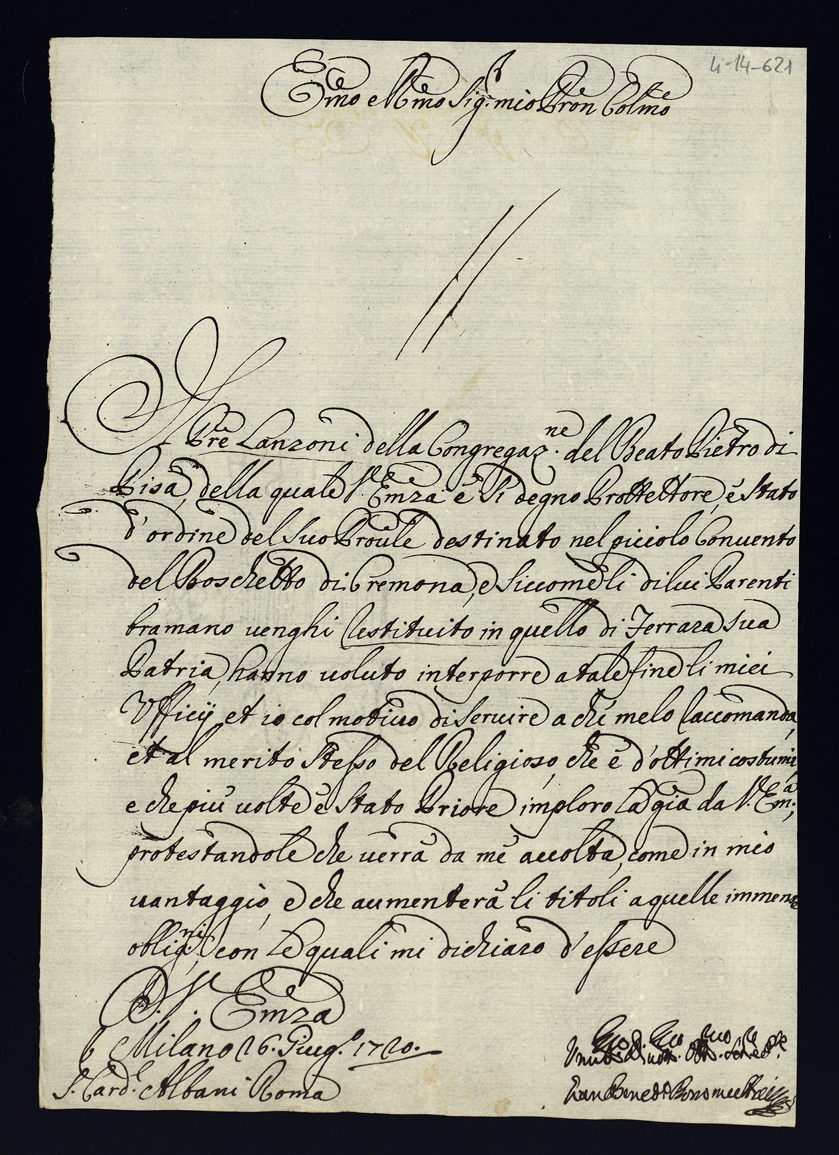 4-14-621
Emo e Rmo Sig.r mio Pron Colmo
Il Prê Lanzoni della Congregaz.ne del Beato Pietro di
Pisa, della quale V. Emza è sì degno Prottettore, è stato
d'ordine del suo Prouîle destinato nel picciolo Conuento
del Boschetto di Cremona, e siccome li di lui Parenti
bramano uenghi restituito in quello di Ferrara sua
Patria, hanno uoluto interporre a tale fine li miei
Ufficij, et io col motiuo di seruire a chi me lo raccomanda,
et al merito stesso del Religioso, che è d'ottimi costumi,
e che più uolte è stato Priore imploro la gîa da V. Em.a,
protestandole che uerrà da me accolta, come in mio
uantaggio, e che aumenterà li titoli a quelle immense
oblig.ni, con le quali mi dichiaro d'essere
D. V. Emza
Milano 26. Giug.o 1720.
S. Card.l Albani Roma
Gio. Bened.o Borromeo